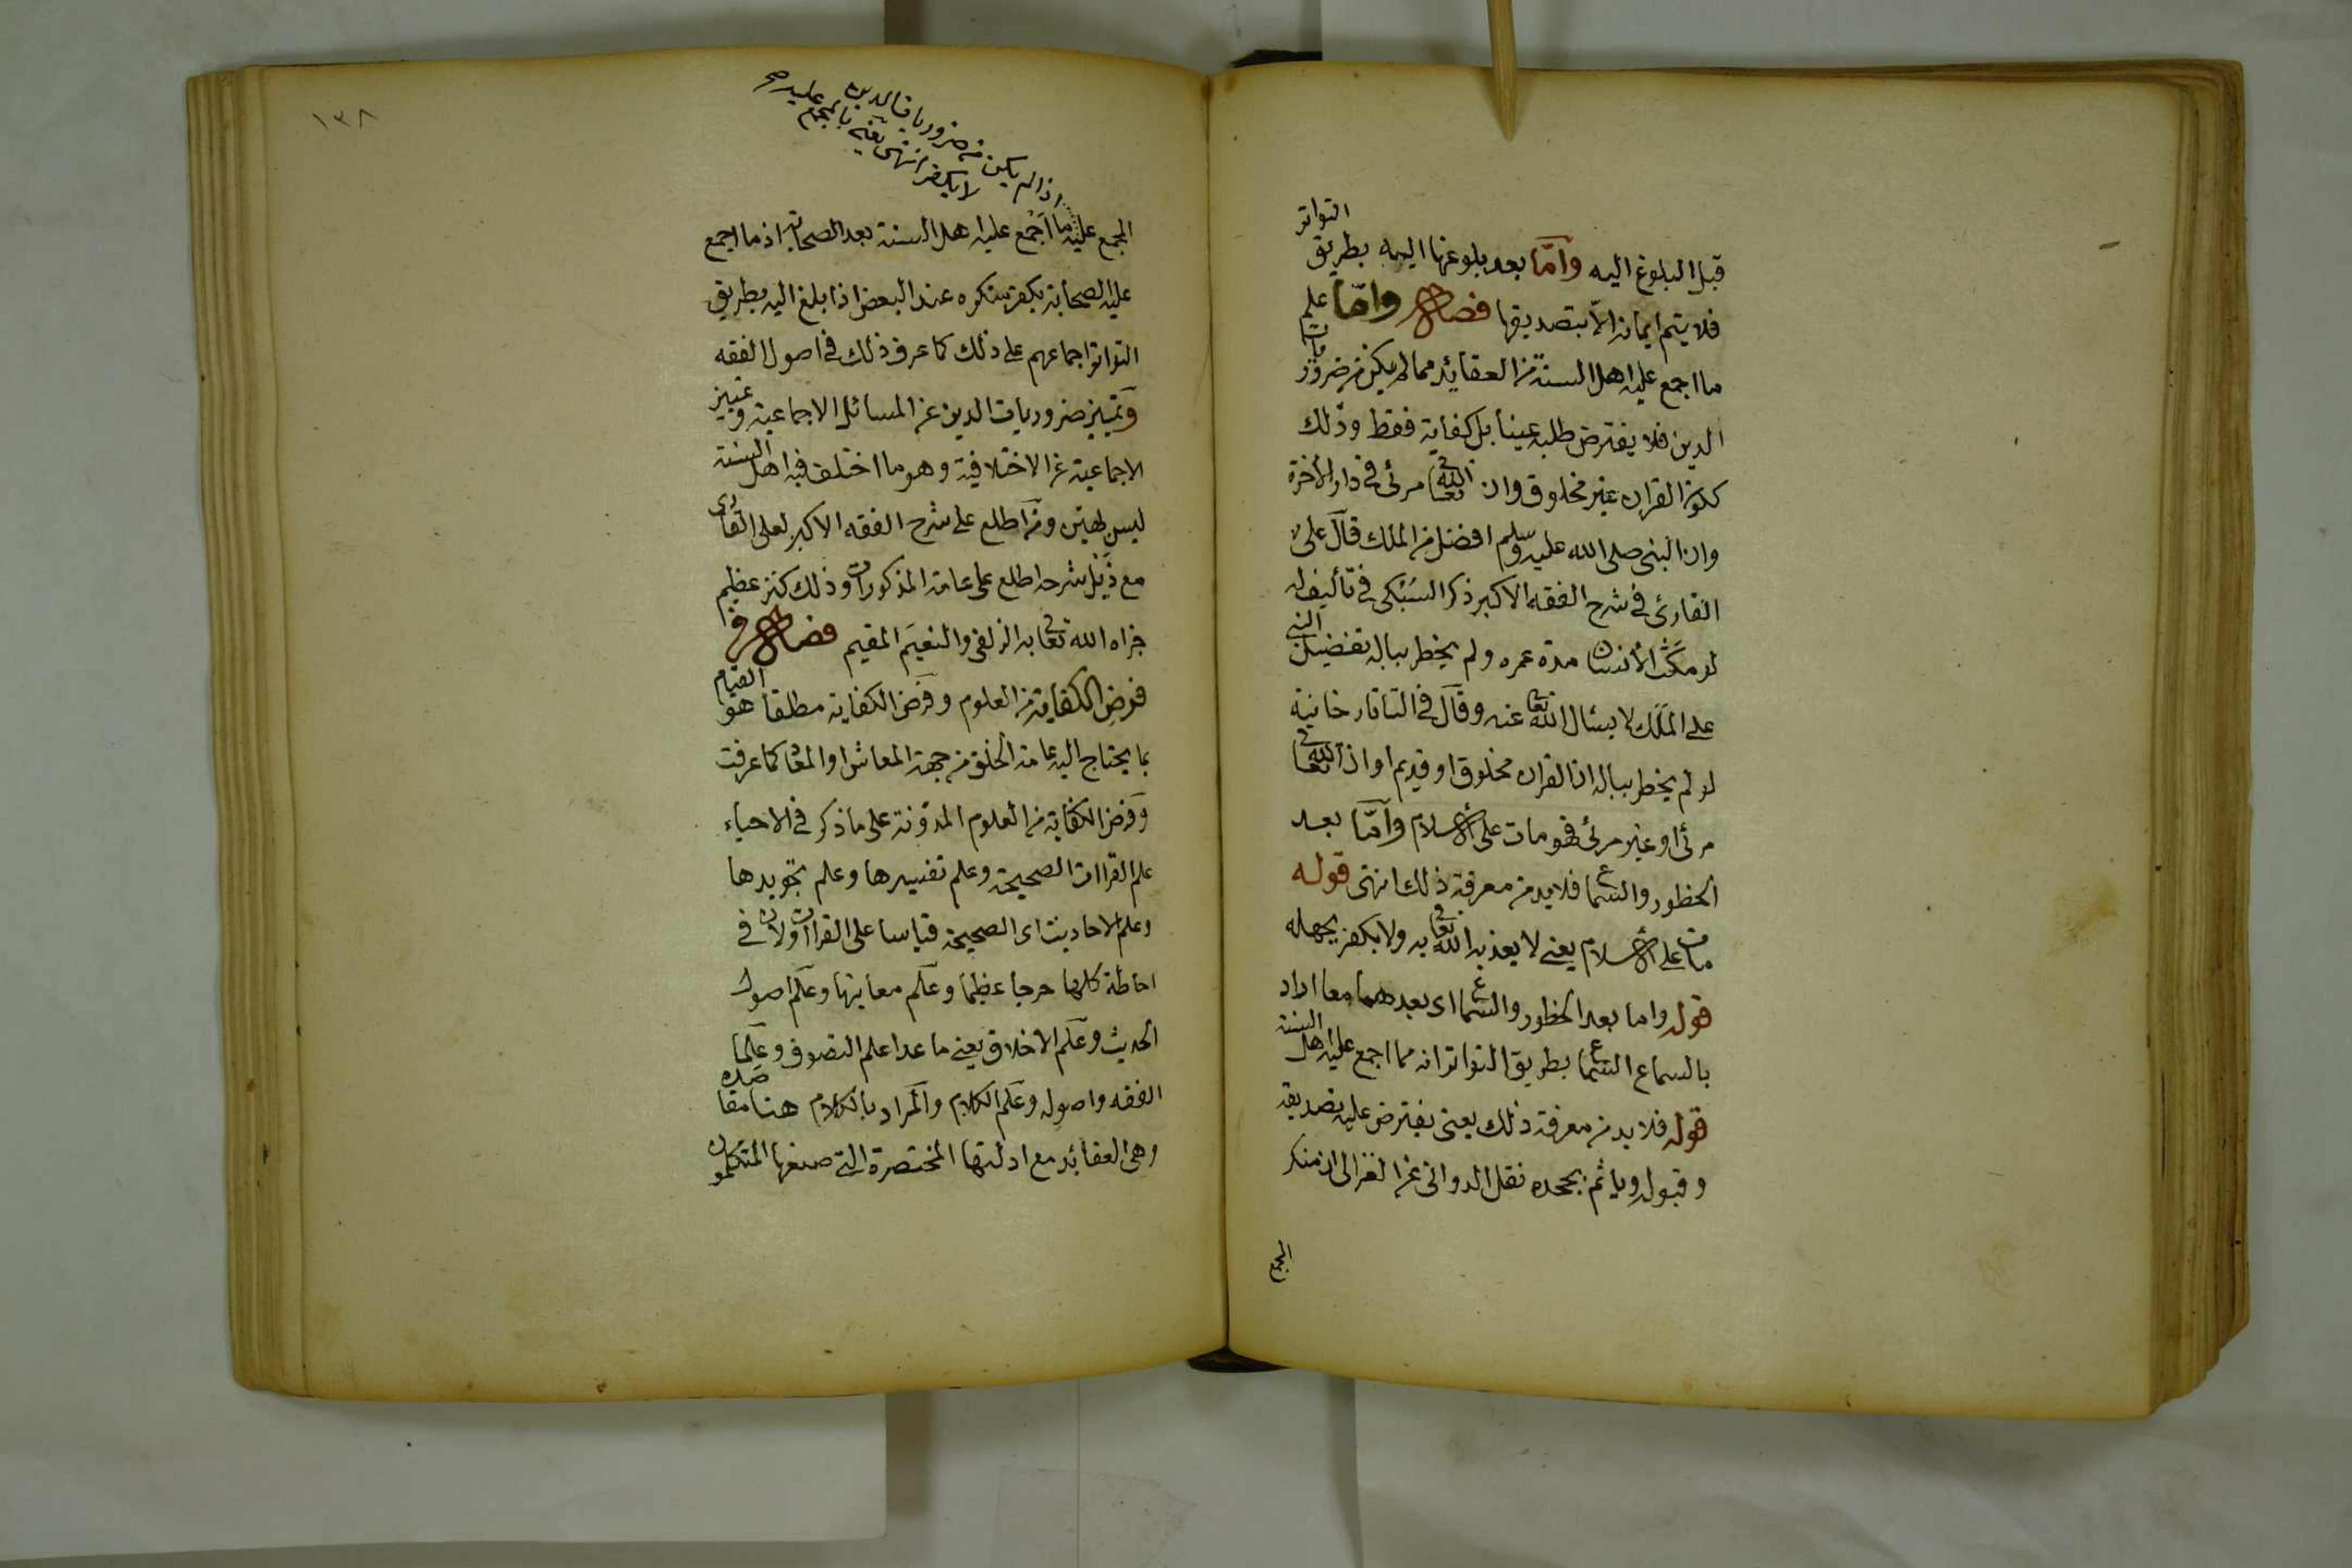 قبل البلوغ اليه وامّا بعد بلوغها اليه بطريق التواتر
فلا يتم ايمانه الّا بتصديقها فصل وامّا علم
ما اجمع عليه اهل السنة من العقائد مما لم يكن من ضروريات
الدين فلا يفترض طلبه عينا بل كفاية فقط وذلك
ككون القران غير مخلوق وان الله تعالى مرئى فى دار الآخرة
وان النبى صلى الله عليه وسلم افضل من الملك قال على
القارئ فى شرح الفقه الاكبر ذكر السُبْكى فى تأليف له
لو مكث الأنسان مدة عمره ولم يخطر بباله تفضيل النبى
على الملَك لا يسئال الله تعالى عنه وقال فى التاتارخانية
لو لم يخطر بباله ان القران مخلوق او قديم او ان الله تعالى
مرئى او غير مرئى فهو مات على الاسلام وامّا بعد
الخطور والسماع فلا بد من معرفة ذلك انتهى قوله
مات على الاسلام يعنى لا يعذبه الله تعالى به ولا يكفر بجهله
قوله واما بعد الخطور والسماع اى بعدهما معا اراد
بالسماع السماع بطريق التواتر انه مما اجمع عليه اهل السنة
قوله فلا بد من معرفة ذلك يعنى يفترض عليه تصديقه
وقبوله وياثم بجحده نقل الدوانى عن الغزالى ان منكر
المجمع
١٣٨
اذا لم يكن من ضروريات الدين
لا يكفر انتهى يعنى بالمجمع عليه صح
المجمع عليه ما اجْمع عليه اهل السنة بعد الصحابة اذ ما اجمع
عليه الصحابة يكفر منكره عند البعض اذا بلغ اليه بطريق
التواتر اجماعهم على ذلك كما عرف ذلك فى اصول الفقه
وتمييز ضروريات الدين عن المسائل الاجماعية وتمييز
الاجماعية عن الاختلافية وهو ما اختلف فيه اهل السنة
ليس بهين ومن اطلع على شرح الفقه الاكبر لعلى القارى
مع ذَيْل شرحه اطلع على عامة المذكورات وذلك كنز عظيم
جزاه الله تعالى به الزلفى والنعيم المقيم فصل فى
فرض الكفاية من العلوم وفرض الكفاية مطلقا هو القيام
بما يحتاج اليه عامة الخلق من جهة المعاش او المعاد كما عرفت
وفرض الكفاية من العلوم المدوّنة على ما ذكر فى الاحياء
علم القراات الصحيحة وعلم تفسيرها وعلم تجويدها
وعلم الاحاديث اى الصحيحة قياسا على القراات ولان فى
احاطة كلها حرجا عظيما وعلم معانيها وعلم اصول
الحديث وعلم الاخلاق يعنى ما عدا علم التصوف وعلما
الفقه واصوله وعلم الكلام والمراد بالكلام هنا مقاصده
وهى العقائد مع ادلتها المختصرة التى صنفها المتكلمون